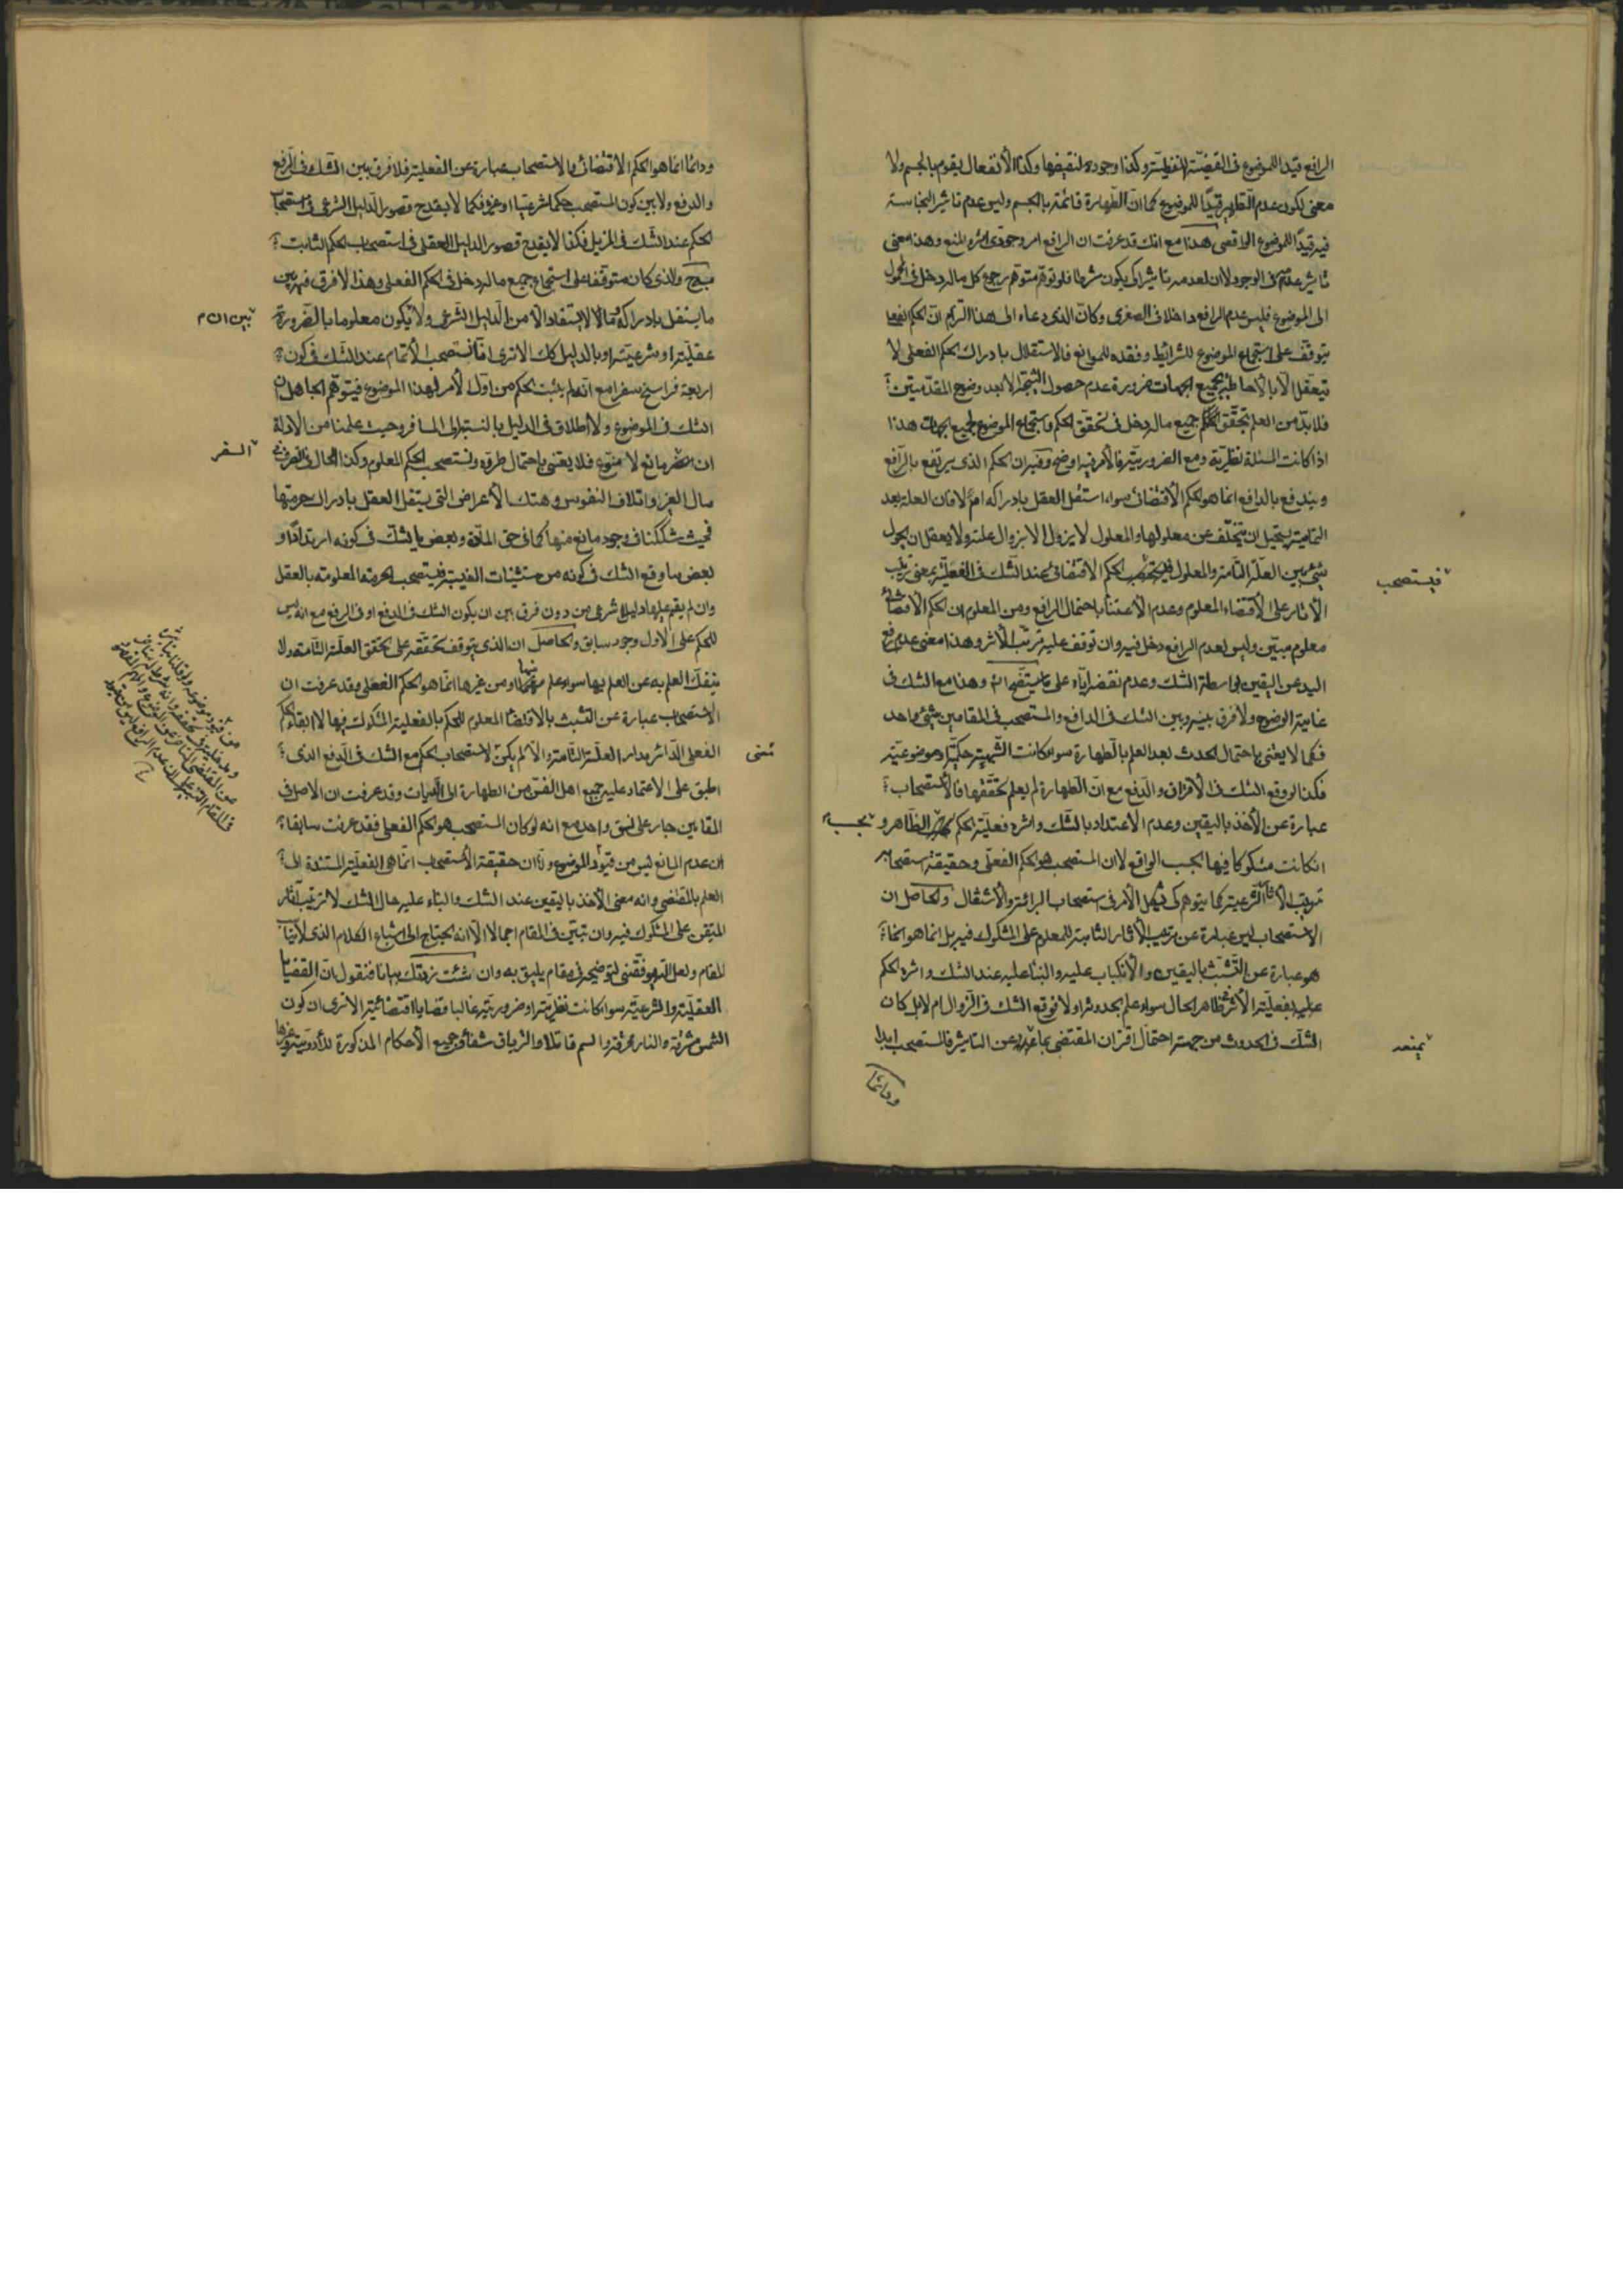 الرافع قيد للموضوع في القضيّة اللفظيّة وكذا وجوده لنقيضها وكذا الانفعال يقوم بالجسم ولا
معنى لكون عدم التطهير قيدًا للموضوع كما ان الطهارة قائمة بالجسم وليس عدم تاثير النجاسة
فيه قيدًا للموضوع الواقعى هذا مع انك قد عرفت ان الرافع امر وجودى اثره المنع وهذا معنى
تاثير عدمه فى الوجود لا ان لعدمه تاثيرا كى يكون شرطا فلو توهم متوهم رجوع كل ما له دخل فى المحمول
الى الموضوع فليس عدم الرافع داخلا فى الصغرى وكان الذى دعاه الى هذا التزام ان الحكم الفعلى
يتوقف على استجماع الموضوع للشرائط وفقده للموانع فالاستقلال بادراك الحكم الفعلى لا
يتعقل الا بالاحاطة بجميع الجهات ضرورة عدم حصول النتيجة الا بعد وضوح المقدمتين
فلا بد من العلم بتحقق جميع ما له دخل فى تحقق الحكم واستجماع الموضوع لجميع الجهات هذا
اذا كانت المسئلة نظرية ومع الضرورية فالامر فيه اوضح وفيه ان الحكم الذى يرتفع بالرافع
ويندفع بالدافع انما هو الحكم الاقتضائى سواء استقل العقل بادراكه ام لا فان العلة بعد
التمامية يستحيل ان يتخلف عن معلولها والمعلول لا يزول الا بزوال علته ولا يعقل ان يحول
شئ بين العلة التامة والمعلول فيستصحب الحكم الاقتضائى عند الشك فى الفعلية بمعنى ترتيب
الاثار على الاقتضاء المعلوم وعدم الاعتناء باحتمال الرافع ومن المعلوم ان الحكم الاقتضائى
معلوم مبين وليس لعدم الرافع دخل فيه وان توقف عليه ترتب الاثر وهذا معنى عدم رفع
اليد عن اليقين بواسطة الشك وعدم نقضه اياه على ما يتضح وهذا مع الشك فى
غاية الوضوح ولا فرق بينه وبين الشك فى الدافع والمستصحب فى المقامين شئ واحد
فكما لا يعتنى باحتمال الحدث بعد العلم بالطهارة سواء كانت الشبهة حكمية او موضوعية
فكذا لو وقع الشك فى الاقتران والدفع مع ان الطهارة لم يعلم تحققها فالاستصحاب
عبارة عن الاخذ باليقين وعدم الاعتداد بالشك واثره فعلية الحكم الظاهر و
بحسب
ان كانت مشكوكا فيها بحسب الواقع لا ان المستصحب هو الحكم الفعلى وحقيقة استصحابه
ترتيب الاثار الشرعية كما يتوهم كى يشكل الامر فى استصحاب البرائة والاشتغال والحاصل ان
الاستصحاب ليس عبارة عن ترتيب الاثار الثابتة للمعلوم على المشكوك فيه بل انما هو
هو عبارة عن التشبث باليقين والانكباب عليه والبناء عليه عند الشك واثره الحكم
عليه بفعلية الاثر فى ظاهر الحال سواء علم بحدوثه اولا فوقع الشك فى الزوال ام لا بل كان
الشك فى الحدوث من جهة احتمال اقتران المقتضى بما يمنعه عن التاثير فالمستصحب ابدا
ودائما
فيستصحب
يمنعه
ودائما انما هو الحكم الاقتضائى والاستصحاب عبارة عن الفعلية فلا فرق بين الشك فى الرفع
والدفع ولا بين كون المستصحب حكما شرعيا او غيره فكما لا يقدح قصور الدليل الشرعى فى استصحاب
الحكم عند الشك فى المزيل فكذا لا يقدح قصور الدليل العقلى فى استصحاب الحكم الثابت
والذى كان متوقفا على استجماع جميع ما له دخل فى الحكم الفعلى وهذا لا فرق فيه بين
ما يستقل بادراكه مما لا يستفاد الا من الدليل الشرعى ولا يكون معلوما بالضرورة
بين ان م
عقلية او شرعية او بالدليل كك الا ترى انا نستصحب الاتمام عند الشك فى كون
اربعة فراسخ سفرا مع انه لم يثبت الحكم من اول الامر لهذا الموضوع فيتوهم الجاهل ان
الشك فى الموضوع ولا اطلاق فى الدليل بالنسبة الى المسافر وحيث علمنا من الادلة
السفر
ان مانع لا منوع فلا يعتنى باحتمال طروه ونستصحب الحكم المعلوم وكذا الحال فى التصرف فى
مال الغير واتلاف النفوس وهتك الاعراض التى يستقل العقل بادراك حرمتها
فحيث شككنا فى وجود مانع منها كما فى حق المارة وبعض ما يشك فى كونه ارتدادا و
بعض ما وقع الشك فى كونه من مستثنيات الغيبة فيستصحب الحرمة المعلومة بالعقل
وان لم يقم عليها دليل شرعى من دون فرق بين ان يكون الشك فى الدفع او فى الرفع مع انه ليس
للحكم على الاول وجود سابق والحاصل ان الذى يتوقف تحققه على تحقق العلة التامة ولا
ينفك العلم به عن العلم بها سواء علم منها او من غيرها انما هو الحكم الفعلى وقد عرفت ان
الاستصحاب عبارة عن التشبث بالاقتضاء المعلوم للحكم بالفعلية المشكوك فيها لا ابقاء الحكم
الفعلى الدائر مدار العلة التامة والا لم يكن لاستصحاب الحكم مع الشك فى الدفع الذى
معنى
اطبق على الاعتماد عليه جميع اهل الفقه من الطهارة الى الديات وقد عرفت ان الاصل فى
المقامين جار على نسق واحد مع انه لو كان المستصحب هو الحكم الفعلى فقد عرفت سابقا
ان عدم المانع ليس من قيود الموضوع وان حقيقة الاستصحاب انما هى الفعلية المستندة الى
العلم بالمقتضى وانه معنى الاخذ باليقين عند الشك والبناء عليه حال الشك لا ترتيب اثار
المتيقن على المشكوك فيه وان تبين فى المقام اجمالا الا انه يحتاج الى اشباع الكلام الذى لا يناسب
المقام ولعل الله يوفقنى لتوضيحه فى مقام يليق به وان شئت زدتك بيانا فنقول ان القضايا
العقلية والشرعية سواء كانت نظرية او ضرورية غالبا قضايا اقتضائية الا ترى ان كون
الشمس مشرقة والنار محرقة والسم قاتلا والترياق شفاء وجميع الاحكام المذكورة للادوية وغيرها